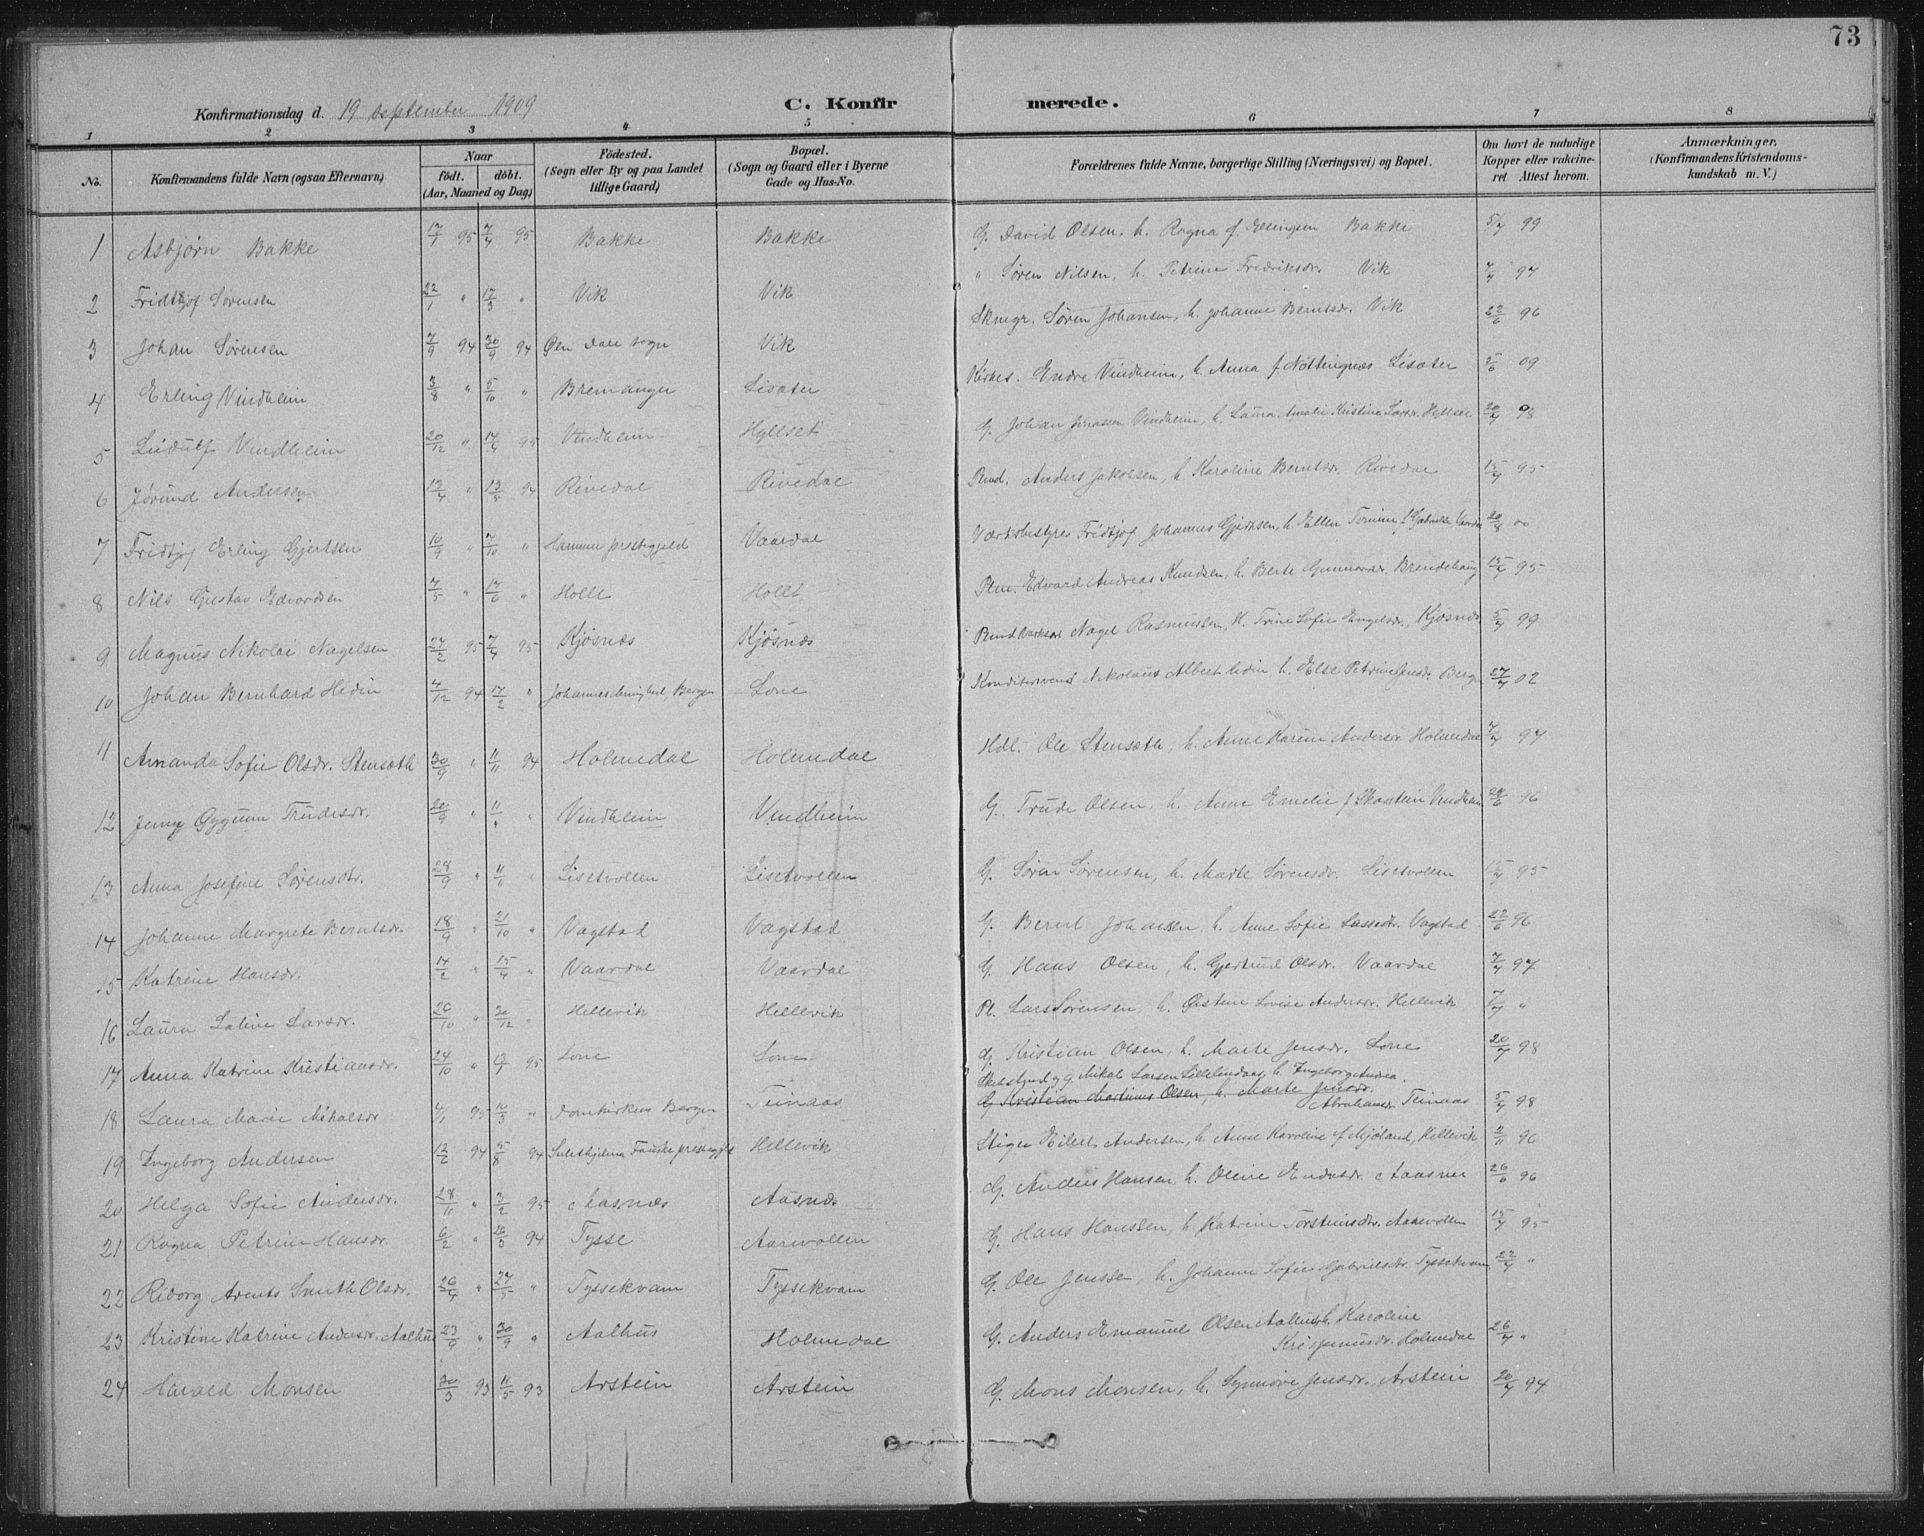 73
Konfirmationsdag d. 19 september 1909 C. Konfirmerede.
1 2 3 4 5 6 7 8
No. Konfirmandens fulde Navn (ogsaa Efternavn) Naar födt. döbt. (Aar, Maaned og Dag) Födested. (Sogn eller By og paa Landet tillige Gaard) Bopæl. (Sogn og Gaard eller i Byerne Gade og Hus-No. Forældrenes fulde Navne, borgerlige Stilling (Næringsvei) og Bopæl. Om havt de naturlige Kopper eller vakcineret. Attest herom. Anmærkninger. (Konfirmandens Kristendomskundskab m. V.)
1 Asbjørn Bakke 17/1 95 7/4 95 Bakke Bakke G. David Olsen. h. Ragna f. Ellingsen Bakke 5/7 99
2 Fridtjof Sørensen 22/1 " 17/3 " Vik Vik " Søren Nilsen, h. Petrine Fredriksdr. Vik 7/7 97
3 Johan Sørensen 7/9 94 30/9 94 Øen Dale sogn Vik Skmgr. Søren Johansen, h. Johanne Berntsdr. Vik 22/6 96
4 Erling Vindheim 3/8 " 5/10 " Bremanger Lisæter Kirkes. Endre Vindheim, h. Anna f Nøttingnæs Lisæter 5/6 09
5 Lidulf Vindheim 20/12 " 14/4 95 Vindheim Hyllset G. Johan Jonassen Vindheim, h. Laura Amalie Kristine Larsdr. Hyllset 20/7 98
6 Jørund Andersen 12/4 " 13/5 94 Rivedal Rivedal Rmd. Anders Jakobsen, h. Karoline Berntsdr. Rivedal 15/7 95
7 Fridtjof Erling Gjertsen 10/9 " 7/10 " Hammer præstegjeld Vaardal Værksbestyrer Fridtjof Johannes Gjertsen, h. Ellen Tomine f Gabrielsen Vaardal 20/8 00
8 Nils Gustav Edvardsen 7/5 " 17/6 " Holle Hollt Plm. Edvard Andreas Knudsen, h. Berte Gunnarsdr. Brendehaug 15/7 95
9 Magnus Nikolai Nagelsen 27/2 95 7/4 95 Kjøsnæs Kjøsnæs Nagel Rasmussen, h. Trine Sofie Engelsdr., Kjøsnæs 5/7 99
10 Johan Bernhard Hedin 4/12 94 17/2 " Johannes menighed, Bergen Lone Nikolaus Albert Hedin h. Else Petrine Jensdr. Bergen 27/7 02
11 Amanda Sofie Olsdr. Stensæth 30/9 " 11/11 94 Holmedal Holmedal Hdl. Ole Stensæth, h. Anne Karine Andersdr Holmedal 7/7 97
12 Jenny Gygum Trudesdr. 20/9 " 11/" " Vindheim Vindheim G. Trude Olsen, h. Anne Emelie f Skorstein Vindheim 22/6 96
13 Anna Josefine Sørensdr. 28/9 " 11/11 " Lisetvollen Lisetvollen G. Søren Sørensen, h. Marte Sørensdr. Lisetvollen 15/7 95
14 Johanne Margrete Berntsdr. 18/9 " 21/10 " Vagstad Vagstad G. Bernt Johansen, h. Anne Sofie Lassedr. Vagstad 22/6 96
15 Katrine Hansdr. 14/2 " 15/4 " Vaardal Vaardal G. Hans Olsen, h. Gjertrud Olsdr. Vaardal 7/7 97
16 Laura Laline Larsdr. 26/10 " 30/12 " Hellevik Hellevik Pl. Lars Sørensen, h. Østine Lovise Andersdr. Hellevik 7/7 "
17 Anna Katrine Kristiansdr. 24/10 " 13/1 95 Lone Lone G. Kristian Olsen, h. Marte Jensdr. Lone 20/7 98
g. Mikal Larsen Lillelindaas, h. Ingeborg Andrea
18 Laura Marie Mikalsdr 4/1 95 10/3 " Domkirken Bergen Teinaas G Kristian Martinus Olsen, h. Marte Jensdr. Abrahamsdr. Teinaas 5/7 98
19 Ingeborg Andersen 12/6 94 5/8 94 Sulithjelma Fauske præstegjeld Hellevik Stiger Eilert Andersen, h. Anne Karoline f Mjøland, Hellevik 2/11 96
20 Helga Sofie Andersdr. 28/11 " 3/2 95 Aasnæs Aasnæs G. Anders Hansen, h. Oline Endresdr. Aasnæs 26/6 96
21 Ragna Petrine Hansdr. 6/2 " 26/3 94 Tysse Aarvollen G. Hans Hanssen, h. Katrine Torsteinsdr. Aarevollen 15/7 95
22 Riborg Arents Smith Olsdr. 26/4 " 27/5 " Tyssekvam Tyssekvam G Ole Jenssen, h. Johanne Sofie Gabrielsdr. Tyssekvam 22/7 "
23 Kristine Katrine Andersdr. Aalhus 23/9 " 30/9 " Aalhus Holmedal G. Anders Emanuel Olsen Aalhus, h. Karoline Krispinusdr. Holmedal 26/7 "
24 Harald Monsen 30/3 93 11/5 93 Arstein Arstein G. Mons Monsen, h. Synnøve Jensdr., Arstein 20/7 94